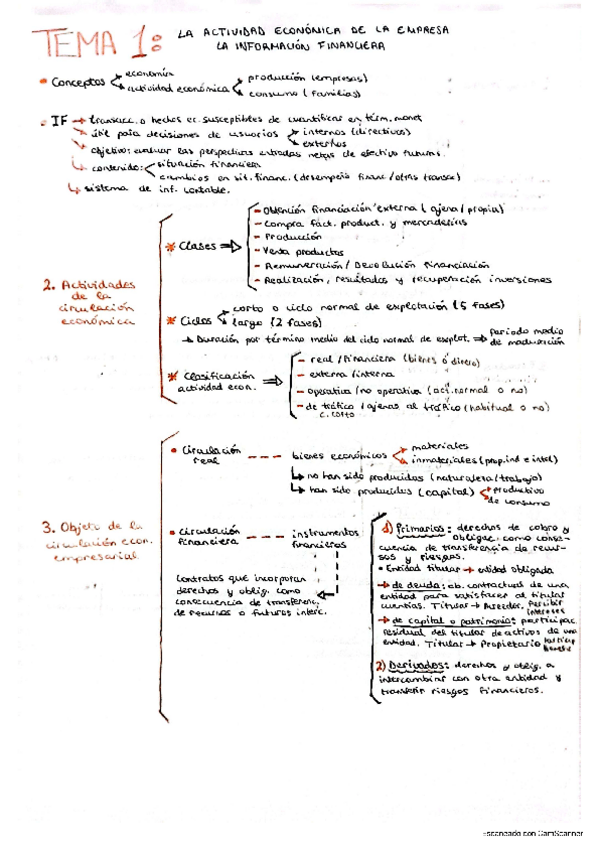 TEMA 1:
LA ACTIVIDAD ECONÓMICA DE LA EMPRESA
LA INFORMACIÓN FINANCIERA
Conceptos
economía
actividad económica
producción (empresas)
consumo (familias)
IF → transacc. o hechos ec. susceptibles de cuantificar en térm. monet
útil para decisiones de usuarios
internos (directivos)
externos
objetivo: evaluar las perspectivas entradas netas de efectivo futuras.
contenido:
situación financiera
cambios en sit. financ. (desempeño financ/otras transac)
sistema de inf. contable.
2. Actividades
de la
circulación
económica
* Clases ⇒
- Obtención financiación externa (ajena/propia)
- Compra fact. product. y mercaderías
- Producción
- Venta productos
- Remuneración/Devolución financiación
- Realización, resultados y recuperación inversiones
* Ciclos
corto o ciclo normal de explotación (5 fases)
largo (2 fases)
→ Duración por término medio del ciclo normal de explot. ⇒ periodo medio
de maduración
* Clasificación
actividad econ. ⇒
- real/financiera (bienes o dinero)
- externa/interna
- operativa/no operativa (act. normal o no)
- de tráfico/ajenas al tráfico (habitual o no)
c. corto
3. Objeto de la
circulación econ.
empresarial
• Circulación
real
--- bienes económicos
materiales
inmateriales (prop. ind e intel)
↳ no han sido producidos (naturaleza/trabajo)
↳ han sido producidos (capital)
productivo
de consumo
• Circulación
financiera
--- instrumentos
financieros
Contratos que incorporan
derechos y oblig. como
consecuencia de transferenc.
de recursos o futuros interc.
1) Primarios: derechos de cobro y
obligac. como conse-
cuencia de transferencia de recur-
sos y riesgos.
• Entidad titular → entidad obligada
→ de deuda: ob. contractual de una
entidad para satisfacer al titular
cuantías. Titular → Acreedor. Percibir
intereses
→ de capital o patrimonio: participac.
residual del titular de activos de una
entidad. Titular → Propietario
2) Derivados: derechos y oblig. a
intercambiar con otra entidad y
transferir riesgos financieros.
Escaneado con CamScanner